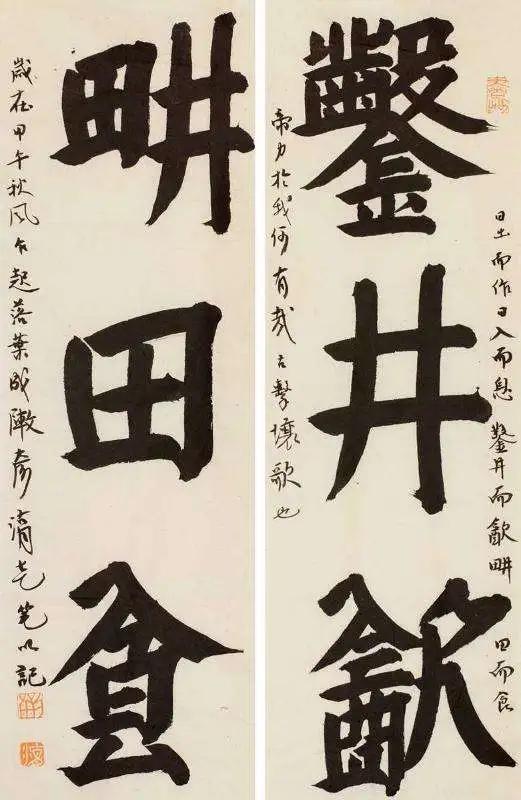 日出而作日入而息鑿井而㱃畊田而食
鑿井㱃
帝力於我何有哉古擊壤歌也
畊田食
歲在甲午秋风乍起落葉成笔以記